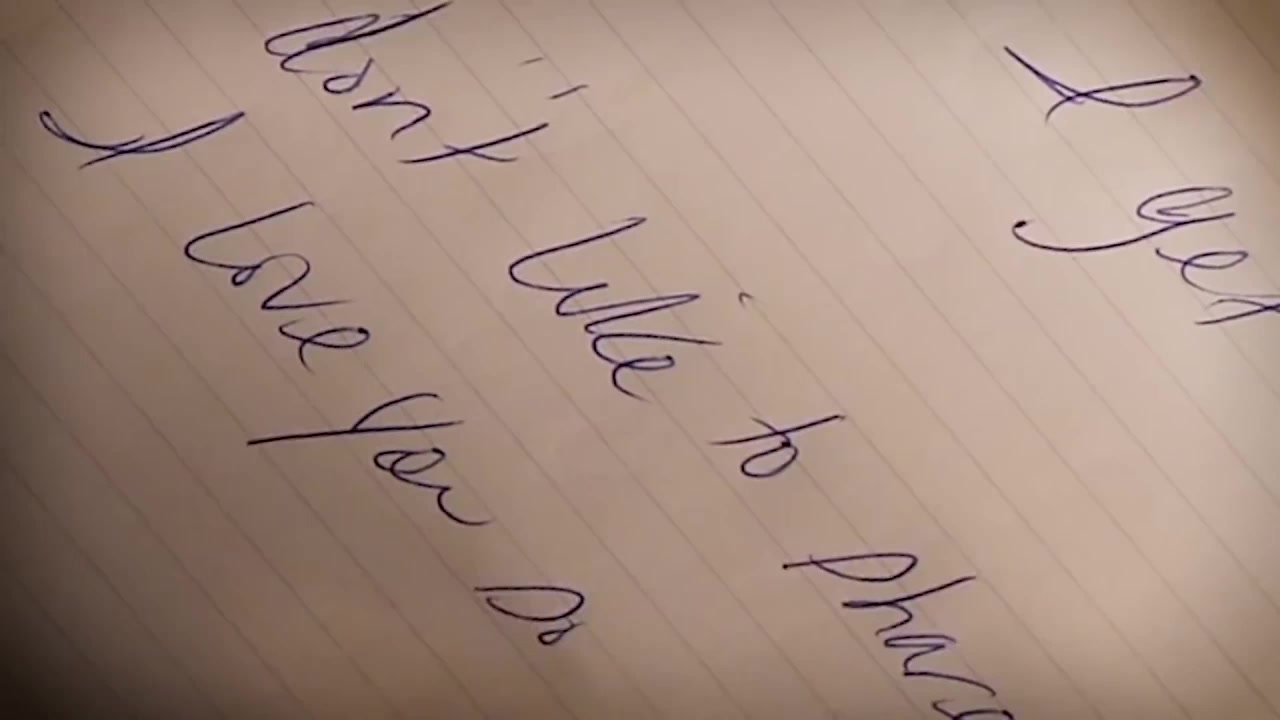 I get
don't like to share
I love you so